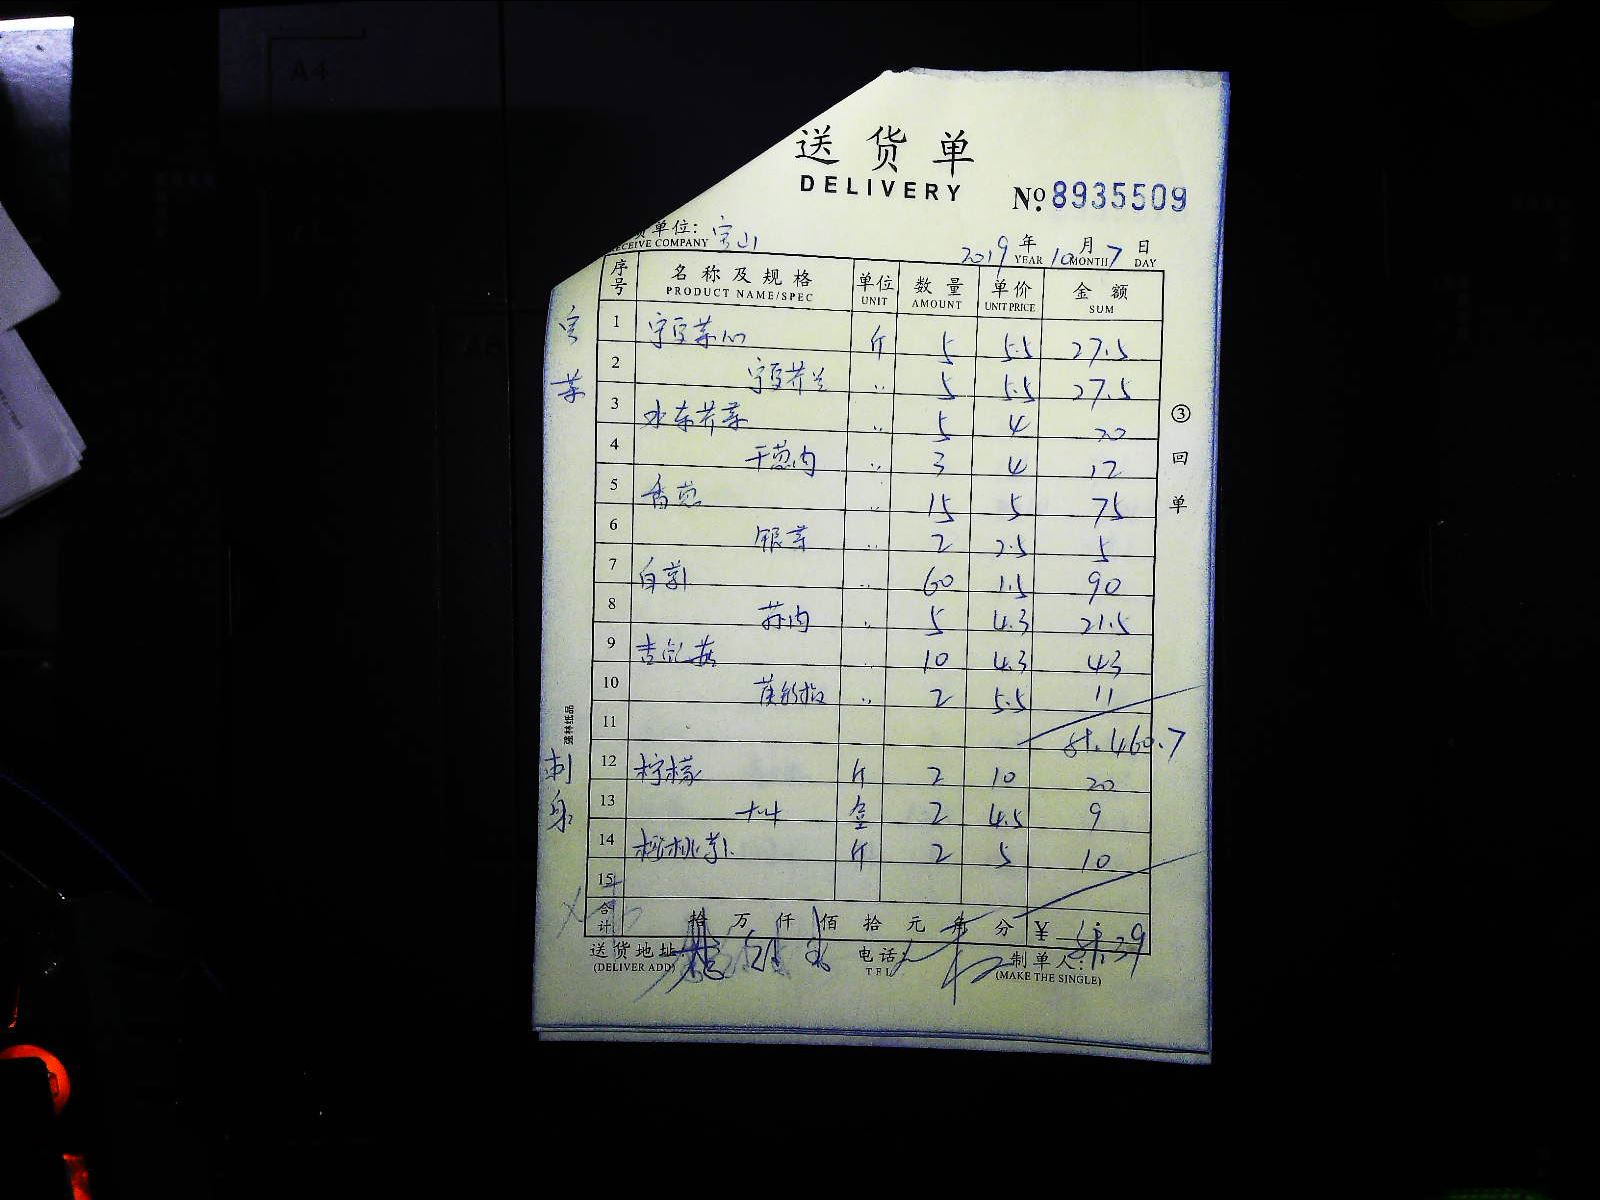 A4
送货单
DELIVERY
No. 8935509
单位: 宝山
RECEIVE COMPANY
2019 年 10 月 7 日
YEAR MONTH DAY
序号 名称及规格 单位 数量 单价 金额
PRODUCT NAME/SPEC UNIT AMOUNT UNIT PRICE SUM
1 宁夏菜心 斤 5 5.5 27.5
2 宁夏芥兰 〃 5 5.5 27.5
3 水东芥菜 〃 5 4 20
4 干葱肉 〃 3 4 12
5 香葱 〃 15 5 75
6 银芽 〃 2 2.5 5
7 白 〃 60 1.5 90
8 肉 〃 5 4.3 21.5
9 菇 〃 10 4.3 43
10 椒 〃 2 5.5 11
11 460.7
12 柠檬 斤 2 10 20
13 大叶 盒 2 4.5 9
14 斤 2 5 10
15
合计 拾 万 仟 佰 拾 元 角 分 ¥ 39
送货地址:
(DELIVER ADD)
电话:
TEL
制单人:
(MAKE THE SINGLE)
③回单
刺身
强林纸品